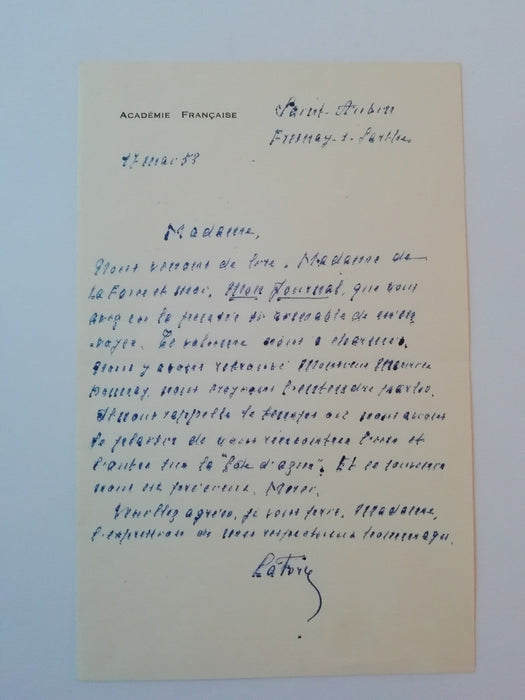 ACADÉMIE FRANÇAISE
Saint-Aubin
Fresnay-s-Sarthe
17 mai 53
Madame,
Nous venons de lire, Madame de
La Force et moi, Mon Journal, que vous
avez eu la pensée si aimable de m'en
voyer. Ce volume nous a charmés.
Nous y avons retrouvé Monsieur Maurice
Donnay, nous croyons l'entendre parler.
Il nous rappelle le temps où nous avions
le plaisir de vous rencontrer l'une et
l'autre sur la "Côte d'azur". Et ce souvenir
nous est précieux. Merci.
Veuillez agréer, je vous prie, Madame,
l'expression de mes respectueux hommages.
La Force